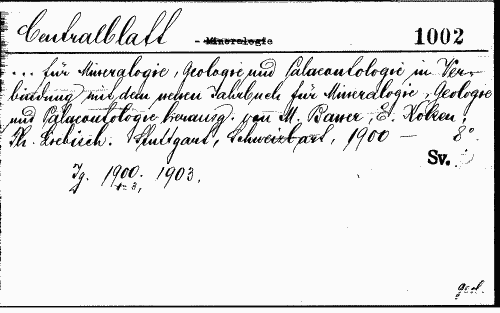 Centralblatt - Mineralogie 1002
... für Mineralogie, Geologie und Palaeontologie in Ver-
bindung mit dem neuen Jahrbuch für Mineralogie, Geologie
und Palaeontologie herausg. von M. Bauer, E. Koken,
Th. Liebisch. Stuttgart, Schweizbart, 1900 — 8°.
Sv.
Jg. 1900. 1903.
geol.